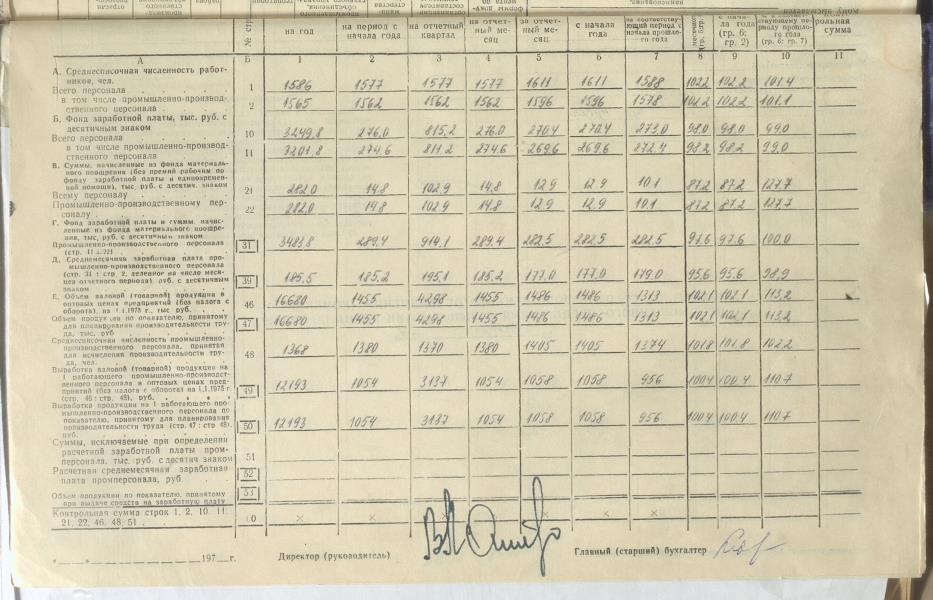 на год
на период с начала года
на отчетный квартал
на отчетный месяц
за отчетный месяц
с начала года
за соответствующий период с начала прошлого года
с начала года (гр. 6: гр. 2)
(гр. 6: гр. 7)
сумма
А Б 1 2 3 4 5 6 7 8 9 10 11
А. Среднесписочная численность работников, чел.
Всего персонала 1 1586 1577 1577 1577 1611 1611 1588 102.2 102.2 101.4
в том числе промышленно-производственного персонала 2 1565 1562 1562 1562 1596 1596 1578 102.2 102.2 101.1
Б. Фонд заработной платы, тыс. руб. с десятичным знаком
Всего персонала 10 3249,8 276,0 815,2 276.0 270,4 270,4 273,0 98,0 98,0 99,0
в том числе промышленно-производственного персонала 11 3201,8 274,6 811,2 274,6 269,6 269,6 98.2 98.2 99,0
В. Суммы, начисленные из фонда материального поощрения (без премий рабочим по фонду заработной платы и единовременной помощи), тыс. руб. с десятич. знаком
Всему персоналу 21 282,0 14,8 102,9 14,8 12,9 12,9 10,1 87.2 87.2 127.7
Промышленно-производственному персоналу 22 282,0 14,8 102,9 14,8 12,9 12,9 10,1 87.2 87.2 127.7
Г. Фонд заработной платы и суммы, начисленные из фонда материального поощрения, тыс. руб. с десятичным знаком
Промышленно-производственного персонала (стр. 11+22) 31 3483,8 289,4 914,1 289.4 282,5 282,5 282,5 97.6 97.6 100,0
Д. Среднемесячная заработная плата промышленно-производственного персонала (стр. 31 : стр. 2, деленное на число месяцев отчетного периода) руб. с десятичным знаком 39 185,5 185,2 195,1 185.2 177.0 177,0 179.0 95.6 95.6 98,9
Е. Объем валовой (товарной) продукции в оптовых ценах предприятий (без налога с оборота), на 1.1975 г., тыс руб. 46 16680 1455 4298 1455 1486 1486 1313 102.1 102.1 113,2
Объем продукции по показателю, принятому для планирования производительности труда, тыс. руб 47 16680 1455 4298 1455 1486 1486 1313 102.1 102.1 113.2
Среднесписочная численность промышленно-производственного персонала, принятая для исчисления производительности труда, чел. 48 1368 1380 1370 1380 1405 1405 1374 101.8 101.8 102.2
Выработка валовой (товарной) продукции на 1 работающего промышленно-производственного персонала в оптовых ценах предприятий (без налога с оборота) на 1.1.1975 г. (стр. 46 : стр. 48), руб. 49 12193 1054 3137 1054 1058 1058 956 100.4 100.4 110.7
Выработка продукции на 1 работающего промышленно-производственного персонала по показателю, принятому для планирования производительности труда (стр. 47 : стр 48), руб. 50 12193 1054 3137 1054 1058 1058 956 100.4 100.4 110.7
Суммы, исключаемые при определении расчетной заработной платы промперсонала, тыс. руб. с десятич знаком 51
Расчетная среднемесячная заработная плата промперсонала, руб. 52
Объем продукции по показателю, принятому при выдаче средств на заработную плату 53
Контрольная сумма строк 1, 2, 10 11 21, 22, 46, 48, 51 60 × × × × × × ×
" " 197 г. Директор (руководитель) Главный (старший) бухгалтер